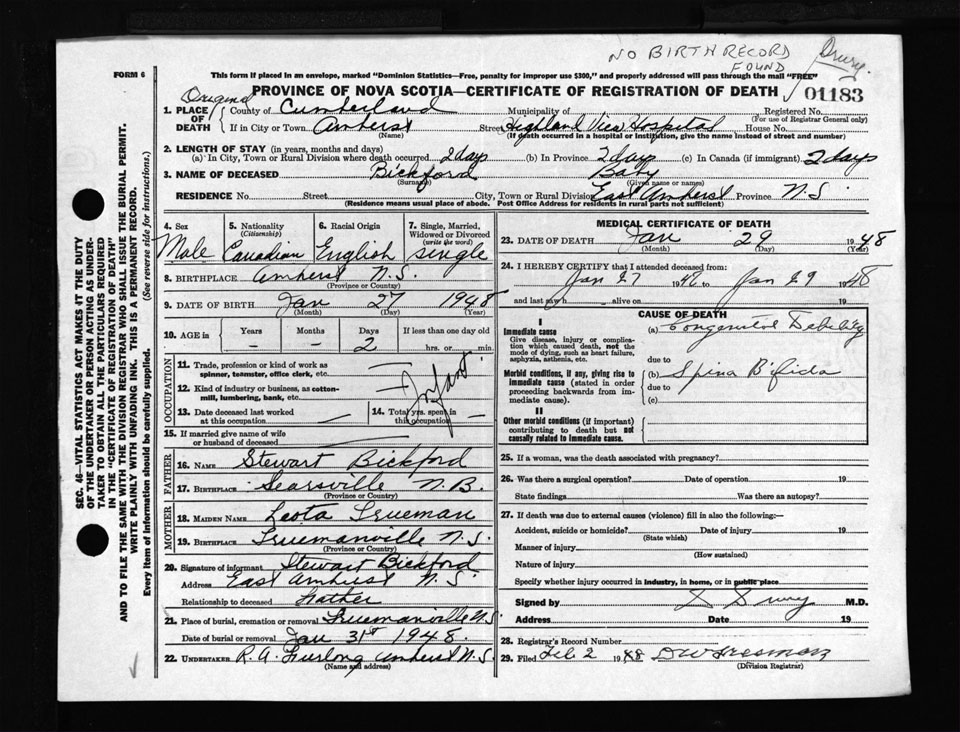 NO BIRTH RECORD FOUND
Drury.
FORM 6
This form if placed in an envelope, marked "Dominion Statistics—Free, penalty for improper use $300," and properly addressed will pass through the mail "FREE"
PROVINCE OF NOVA SCOTIA—CERTIFICATE OF REGISTRATION OF DEATH
01183
Original
1. PLACE OF DEATH
County of Cumberland Municipality of Registered No.
(For use of Registrar General only)
If in City or Town Amherst Street Highland View Hospital House No.
(Name) (If death occurred in a hospital or institution, give the name instead of street and number)
2. LENGTH OF STAY (in years, months and days)
(a) In City, Town or Rural Division where death occurred 2 days (b) In Province 2 days (c) In Canada (if immigrant) 2 days
3. NAME OF DECEASED Bickford Baby
(Surname) (Given name or names)
RESIDENCE No. Street City, Town or Rural Division East Amherst Province N.S.
(Residence means usual place of abode. Post Office Address for residents in rural parts not sufficient)
4. Sex Male
5. Nationality (Citizenship) Canadian
6. Racial Origin English
7. Single, Married, Widowed or Divorced (write the word) single
8. BIRTHPLACE Amherst N.S.
(Province or Country)
9. DATE OF BIRTH Jan 27 1948
(Month) (Day) (Year)
10. AGE in Years — Months — Days 2 If less than one day old hrs. or min.
OCCUPATION
11. Trade, profession or kind of work as spinner, teamster, office clerk, etc. —
12. Kind of industry or business, as cotton-mill, lumbering, bank, etc.
Infant
13. Date deceased last worked at this occupation —
14. Total yrs. spent in this occupation —
15. If married give name of wife or husband of deceased —
FATHER
16. NAME Stewart Bickford
17. BIRTHPLACE Searsville N.B.
(Province or Country)
MOTHER
18. MAIDEN NAME Leota Trueman
19. BIRTHPLACE Truemanville N.S.
(Province or Country)
20. Signature of informant Stewart Bickford
Address East Amherst N.S.
Relationship to deceased Father
21. Place of burial, cremation or removal Truemanville N.S.
Date of burial or removal Jan 31st 1948.
22. UNDERTAKER R.A. Furlong Amherst N.S.
(Name and address)
MEDICAL CERTIFICATE OF DEATH
23. DATE OF DEATH Jan 29 1948
(Month) (Day) (Year)
24. I HEREBY CERTIFY that I attended deceased from:
Jan 27 1948 to Jan 29 1948
and last saw h alive on 19
CAUSE OF DEATH
I
Immediate cause
Give disease, injury or complication which caused death, not the mode of dying, such as heart failure, asphyxia, asthenia, etc.
(a) Congenital Debility
due to
Morbid conditions, if any, giving rise to immediate cause (stated in order proceeding backwards from immediate cause).
(b) Spina Bifida
due to
(c)
II
Other morbid conditions (if important) contributing to death but not causally related to immediate cause.
25. If a woman, was the death associated with pregnancy?
26. Was there a surgical operation? Date of operation 19
State findings Was there an autopsy?
27. If death was due to external causes (violence) fill in also the following:—
Accident, suicide or homicide? Date of injury 19
(State which)
Manner of injury
(How sustained)
Nature of injury
Specify whether injury occurred in industry, in home, or in public place
Signed by D Drury M.D.
Address Date 19
28. Registrar's Record Number
29. Filed Feb 2 1948
(Division Registrar)
SEC. 46—VITAL STATISTICS ACT MAKES IT THE DUTY
OF THE UNDERTAKER OR PERSON ACTING AS UNDERTAKER TO OBTAIN ALL THE PARTICULARS REQUIRED
IN THE "CERTIFICATE OF REGISTRATION OF DEATH"
AND TO FILE THE SAME WITH THE DIVISION REGISTRAR WHO SHALL ISSUE THE BURIAL PERMIT.
WRITE PLAINLY WITH UNFADING INK. THIS IS A PERMANENT RECORD.
Every item of information should be carefully supplied. (See reverse side for instructions.)